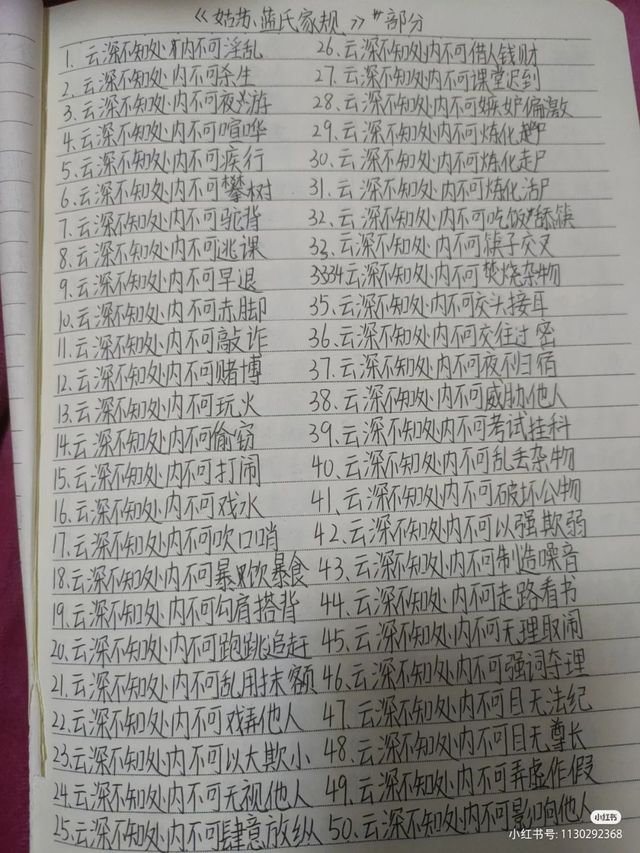 《姑苏蓝氏家规》部分
1. 云深不知处内不可淫乱
2. 云深不知处内不可杀生
3. 云深不知处内不可夜游
4. 云深不知处内不可喧哗
5. 云深不知处内不可疾行
6. 云深不知处内不可攀树
7. 云深不知处内不可驼背
8. 云深不知处内不可逃课
9. 云深不知处内不可早退
10. 云深不知处内不可赤脚
11. 云深不知处内不可敲诈
12. 云深不知处内不可赌博
13. 云深不知处内不可玩火
14. 云深不知处内不可偷窃
15. 云深不知处内不可打闹
16. 云深不知处内不可戏水
17. 云深不知处内不可吹口哨
18. 云深不知处内不可暴饮暴食
19. 云深不知处内不可勾肩搭背
20. 云深不知处内不可跑跳追赶
21. 云深不知处内不可乱用抹额
22. 云深不知处内不可戏弄他人
23. 云深不知处内不可以大欺小
24. 云深不知处内不可无视他人
25. 云深不知处内不可肆意放纵
26、云深不知处内不可借人钱财
27、云深不知处内不可课堂迟到
28、云深不知处内不可嫉妒偏激
29、云深不知处内不可炼化
30、云深不知处内不可炼化走尸
31、云深不知处内不可炼化活尸
32、云深不知处内不可吃饭舔筷
33、云深不知处内不可筷子交叉
34、云深不知处内不可焚烧杂物
35、云深不知处内不可交头接耳
36、云深不知处内不可交往过密
37、云深不知处内不可夜不归宿
38、云深不知处内不可威胁他人
39、云深不知处内不可考试挂科
40、云深不知处内不可乱丢杂物
41、云深不知处内不可破坏公物
42、云深不知处内不可以强欺弱
43、云深不知处内不可制造噪音
44、云深不知处内不可走路看书
45、云深不知处内不可无理取闹
46、云深不知处内不可强词夺理
47、云深不知处内不可目无法纪
48、云深不知处内不可目无尊长
49、云深不知处内不可弄虚作假
50、云深不知处内不可影响他人
小红书
小红书号: 1130292368